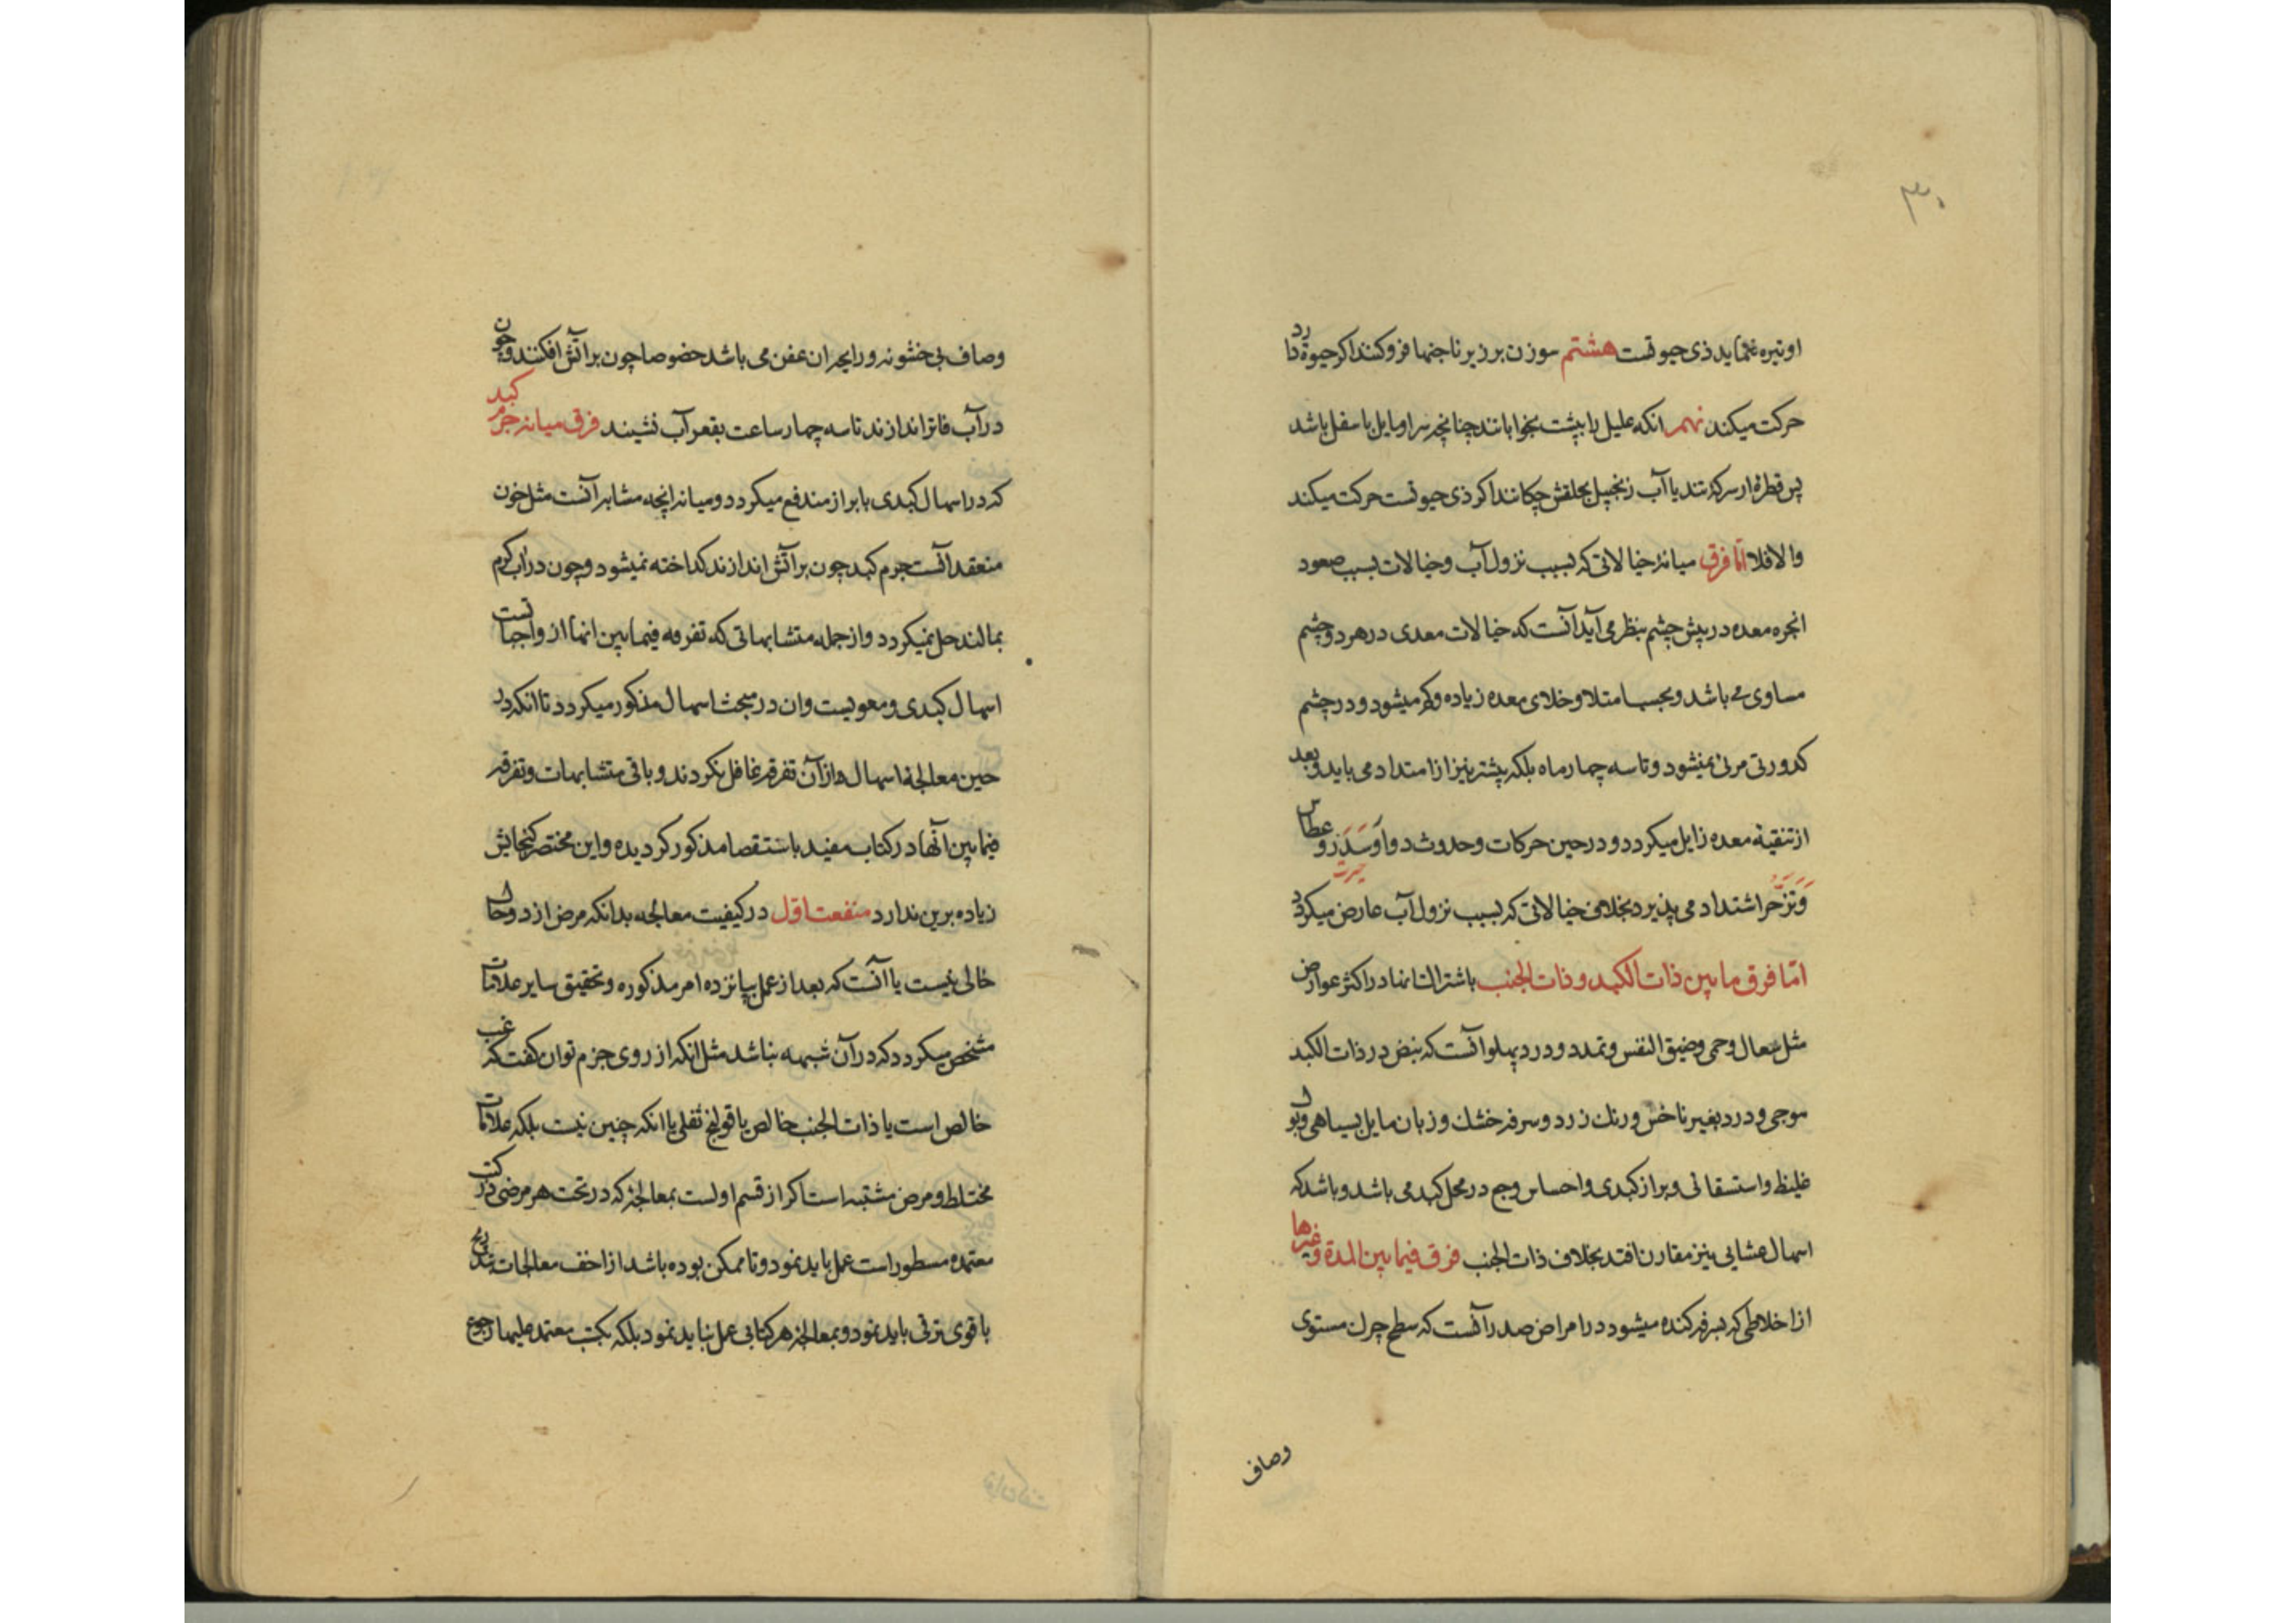 ۳۰
او تیره نماید ذی حیوتست هشتم سوزن بر زیر ناخنها فرو کنند اکر حیوة دارد
حرکت میکند نهم انکه علیل را بپشت بخوابانند چنانچه سر او مایل باسفل باشد
پس قطرۀ از سرکه تند یا آب زنجبیل بحلقش چکانند اکر ذی حیوتست حرکت میکند
والا فلا امّا فرق میانۀ خیالاتی که بسبب نزول آب و خیالات بسبب صعود
ابخره معده در پیش چشم بنظر می آید آنست که خیالات معدی در هر دو چشم
مساوی می باشد و بحسب امتلا و خلای معده زیاده و کم میشود و در چشم
کدورتی مرئی نمیشود و تا سه چهار ماه بلکه پیشتر نیز از امتداد می یابد و بعد
از تنقیۀ معده زایل میکردد و در حین حرکات و حدوث دوار و سَدَر و عطاس
وَ تزحّر اشتداد می پذیرد بخلاف خیالاتی که بسبب نزول آب عارض میکردد
امّا فرق مابین ذات الکبد و ذات الجنب باشتراکشانها در اکثر عوارض
مثل سعال و حمی و ضیق النفس و تمدد و درد پهلو آنست که نبض در ذات الکبد
موجی و درد بغیر ناخس و رنک زرد و سرفه خشک و زبان مایل بسیاهی و بول
غلیظ و استسقائی و براز کبدی و احساس وجع در محل کبد می باشد و باشد که
اسهال غشایی نیز مقارن افتد بخلاف ذات الجنب فرق فیمابین المدة و غیرها
از اخلاطی که بسرفه کنده میشود در امراض صدر آنست که سطح چرک مستوی
وصاف
وصاف بی خشونه و رایحه ان عفن می باشد خصوصا چون بر آتش افکنند و چون
در آب فاتر اندازند تا سه چهار ساعت بقعر آب نشیند فرق میانه جرم کبد
که در اسهال کبدی با براز مندفع میکردد و میانه انچه مشابه آنست مثل خون
منعقد آنست جرم کبد چون بر آتش اندازند کداخته نمیشود و چون در آب کرم
بمالند حل نمیکردد و از جمله متشابهاتی که تفرقه فیمابین انها از واجباتست
اسهال کبدی و معویست و ان در مبحث اسهال مذکور میکردد تا انکه در
حین معالجۀ اسهال از آن تفرقه غافل نکردند و باقی متشابهات و تفرقه
فیمابین آنها در کتاب مفید باستقصا مذکور کردیده و این مختصر کنجایش
زیاده برین ندارد منفعت اوّل در کیفیت معالجه بدانکه مرض از دو حال
خالی نیست یا آنست که بعد از عمل بپانزده امر مذکوره و تحقیق سایر علامات
مشخص میکردد که در آن شبهه نباشد مثل انکه از روی جزم توان کفت که غب
خالص است یا ذات الجنب خالص یا قولنج ثفلی یا انکه چنین نیست بلکه علامات
مختلط و مرض مشتبه است اکر از قسم اولست بمعالجۀ که در تحت هر مرضی در کتب
معتمده مسطور است عمل باید نمود و تا ممکن بوده باشد از اخف معالجات بتدریج
باقوی ترقی باید نمود و بمعالجۀ هر کتابی عمل نباید نمود بلکه بکتب معتمد علیها رجوع